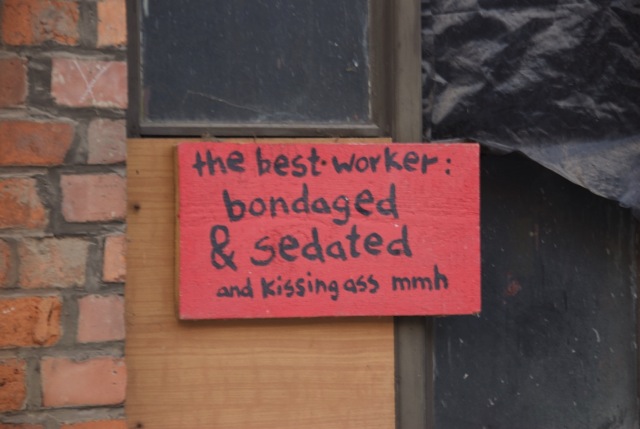 the best·worker:
bondaged
& sedated
and kissing ass mmh